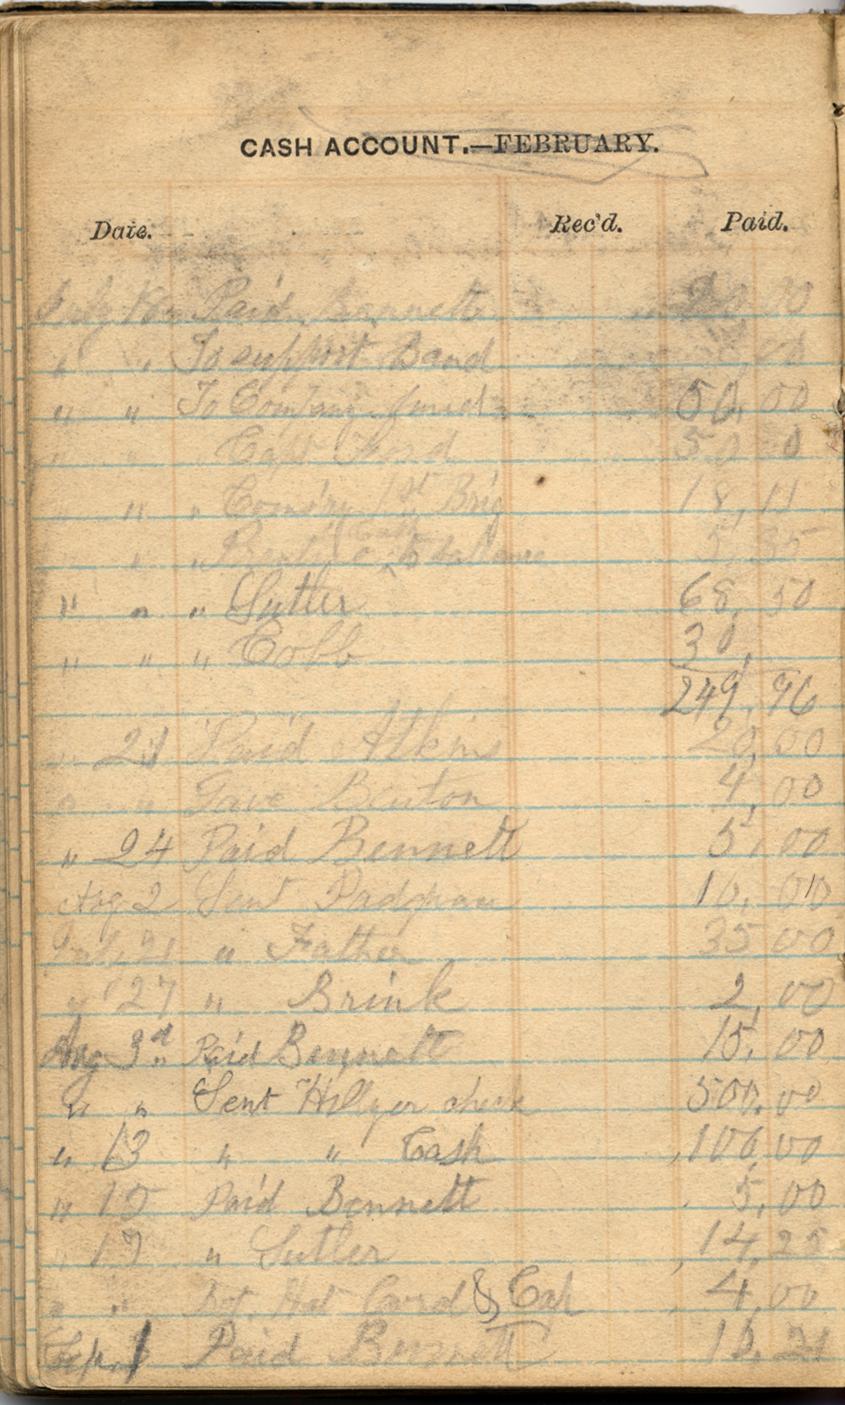 CASH ACCOUNT.—FEBRUARY.
Date. Rec'd. Paid.
July Paid Bennett 00
" " To support Band 00
" " To Company fund 50,00
" Capt 50 0
" " " 1st Brig 18,11
" " balance 5,35
" " " Sutler 68,50
" " " Cobb 30,
249,96
" 21 Paid Atkins 20,00
" " Gave Benton 4,00
" 24 Paid Bennett 5,00
Aug 2 Sent 10,00
July 21 " Father 35 00
" 27 " Brink 2,00
Aug 3d Paid Bennett 15,00
" " Sent Hillyer check 500,00
" 13 " " Cash 100,00
" 15 Paid Bennett 5,00
" 17 " Sutler 14,25
" " Bot. Hat Cord & Cap 4,00
Sep. 1 Paid Bennett